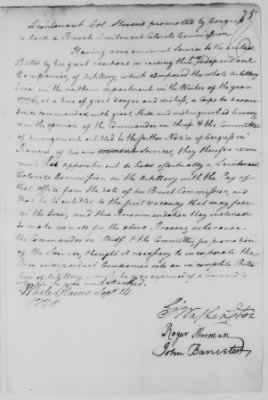 75
Lieutenant Col Stevens promoted by Congress
to hold a Brevet Lieutenant Colonels Commission
Having done eminent Service to the united
States by his great exertions in raising three Independant
Companies, of Artillery, which composed the whole Artillery
here in the northern department in the Winter of the year
1776, at a time of great danger and
commanded with great and distinguished bravery
were the opinion of the Commander in Chief & the Committee
of arrangement entitled to the further Notice of Congress in
Reward of his eminent Services, they therefore recom
mend his appointment to hold effectually a Lieutenant
Colonels Commission in the Artillery with the Pay of
that office from the date of his Brevet Commission, and
that he be entitled to the first vacancy that may happen
in the line, and this Recommendation they
to make the because
the Commander in Chief & the Committee, for promotion
of the Service, thought it necessary to incorporate the
three independant Companies into an incomplete Batta
lion of Artillery
White Plains Sept. 14
1778
Go Washington
Roger Sherman
John Banister